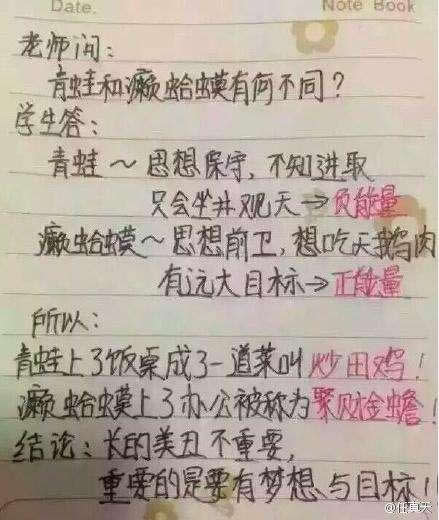 Date.
Note Book
老师问：
青蛙和癞蛤蟆有何不同？
学生答：
青蛙～思想保守，不知进取
只会坐井观天→负能量
癞蛤蟆～思想前卫，想吃天鹅肉
有远大目标→正能量
所以：
青蛙上了饭桌成了一道菜叫炒田鸡！
癞蛤蟆上了办公被称为聚财金蟾！
结论：长的美丑不重要，
重要的是要有梦想与目标！！
@任真天